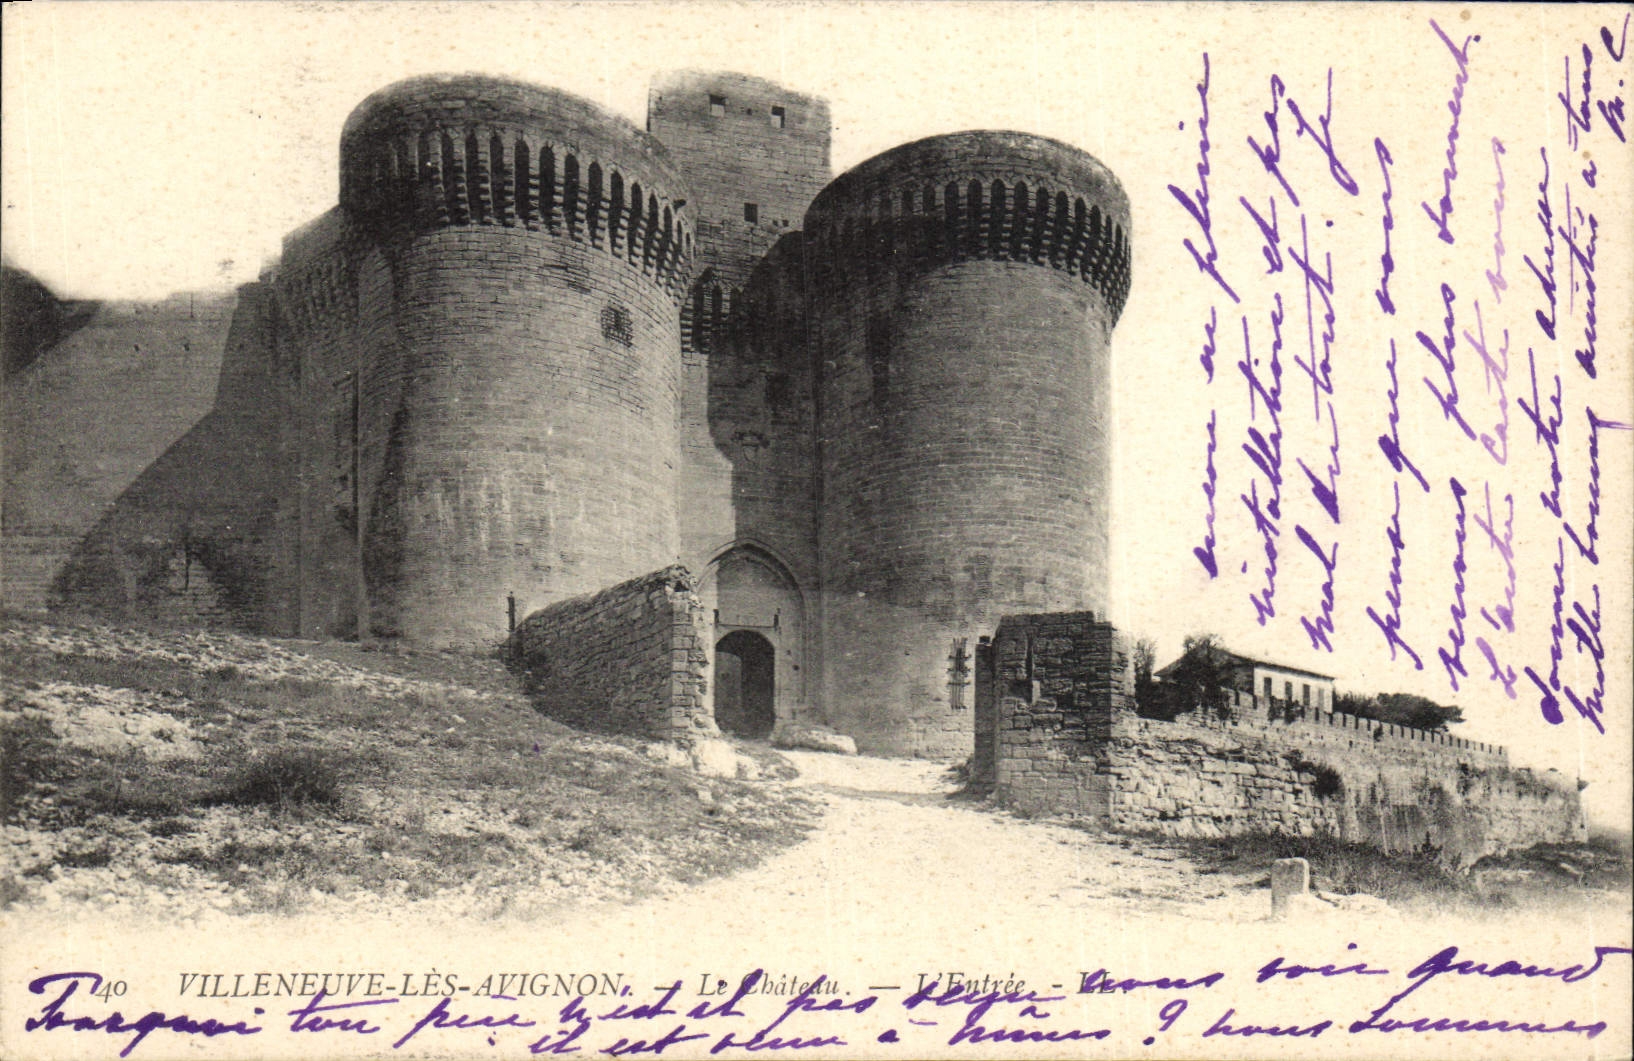 40 VILLENEUVE-LÈS-AVIGNON. — Le Château. — L'Entrée. - LL.
Pourquoi ton père n'est il pas venu nous voir quand
il est venu à Nîmes ? nous sommes
encor en pleine
installation et pas
mal du tout. Je
pense que vous
venous plus souvent.
L'autre carte vous
donne notre adresse
mille bonnes amitiés a tous
M. C